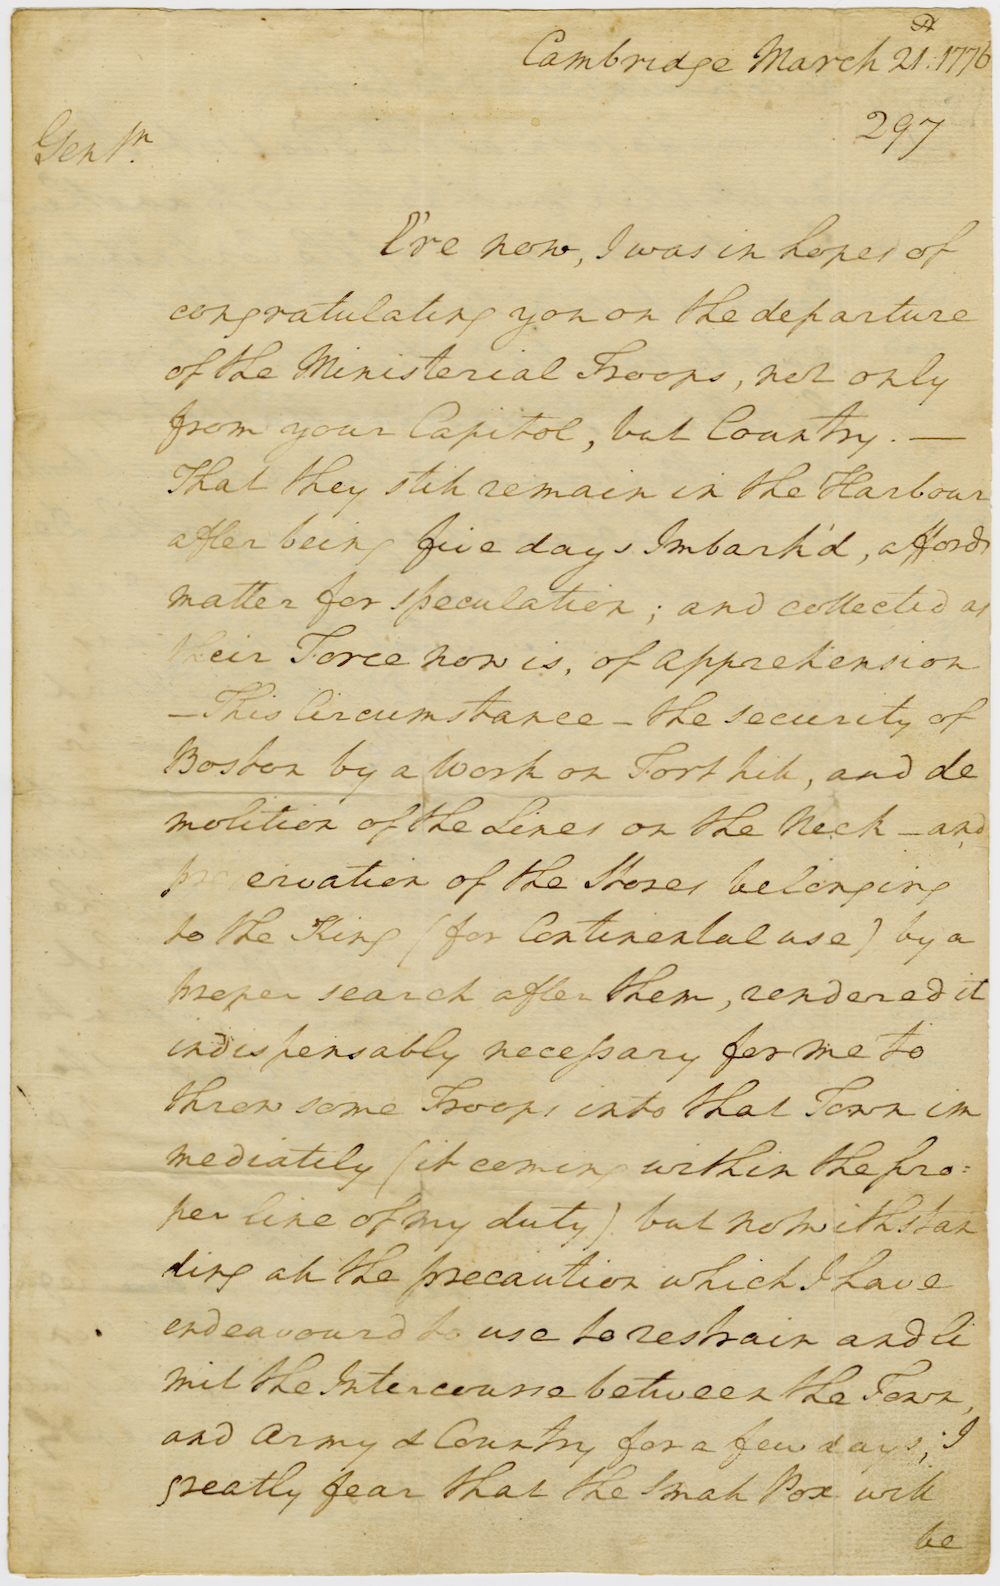 Cambridge March 21st. 1776
297
Gentn.
E're now, I was in hopes of
congratulating you on the departure
of the Ministerial Troops, not only
from your Capitol, but Country. —
That they still remain in the Harbour
after being five days Imbark'd, affords
matter for speculation; and collected as
their Force now is, of apprehension
— This Circumstance — the security of
Boston by a Work on Fort hill, and de
molition of the Lines on the Neck — and
preservation of the Stores belonging
to the King (for Continental use) by a
proper search after them, rendered it
indispensably necessary for me to
throw some Troops into that Town im
mediately (it coming within the pro=
per line of my duty) but notwithstan
ding all the precaution which I have
endeavourd to use to restrain and li
mit the Intercourse between the Town,
and Army & Country for a few days; I
greatly fear that the Small Pox will
be